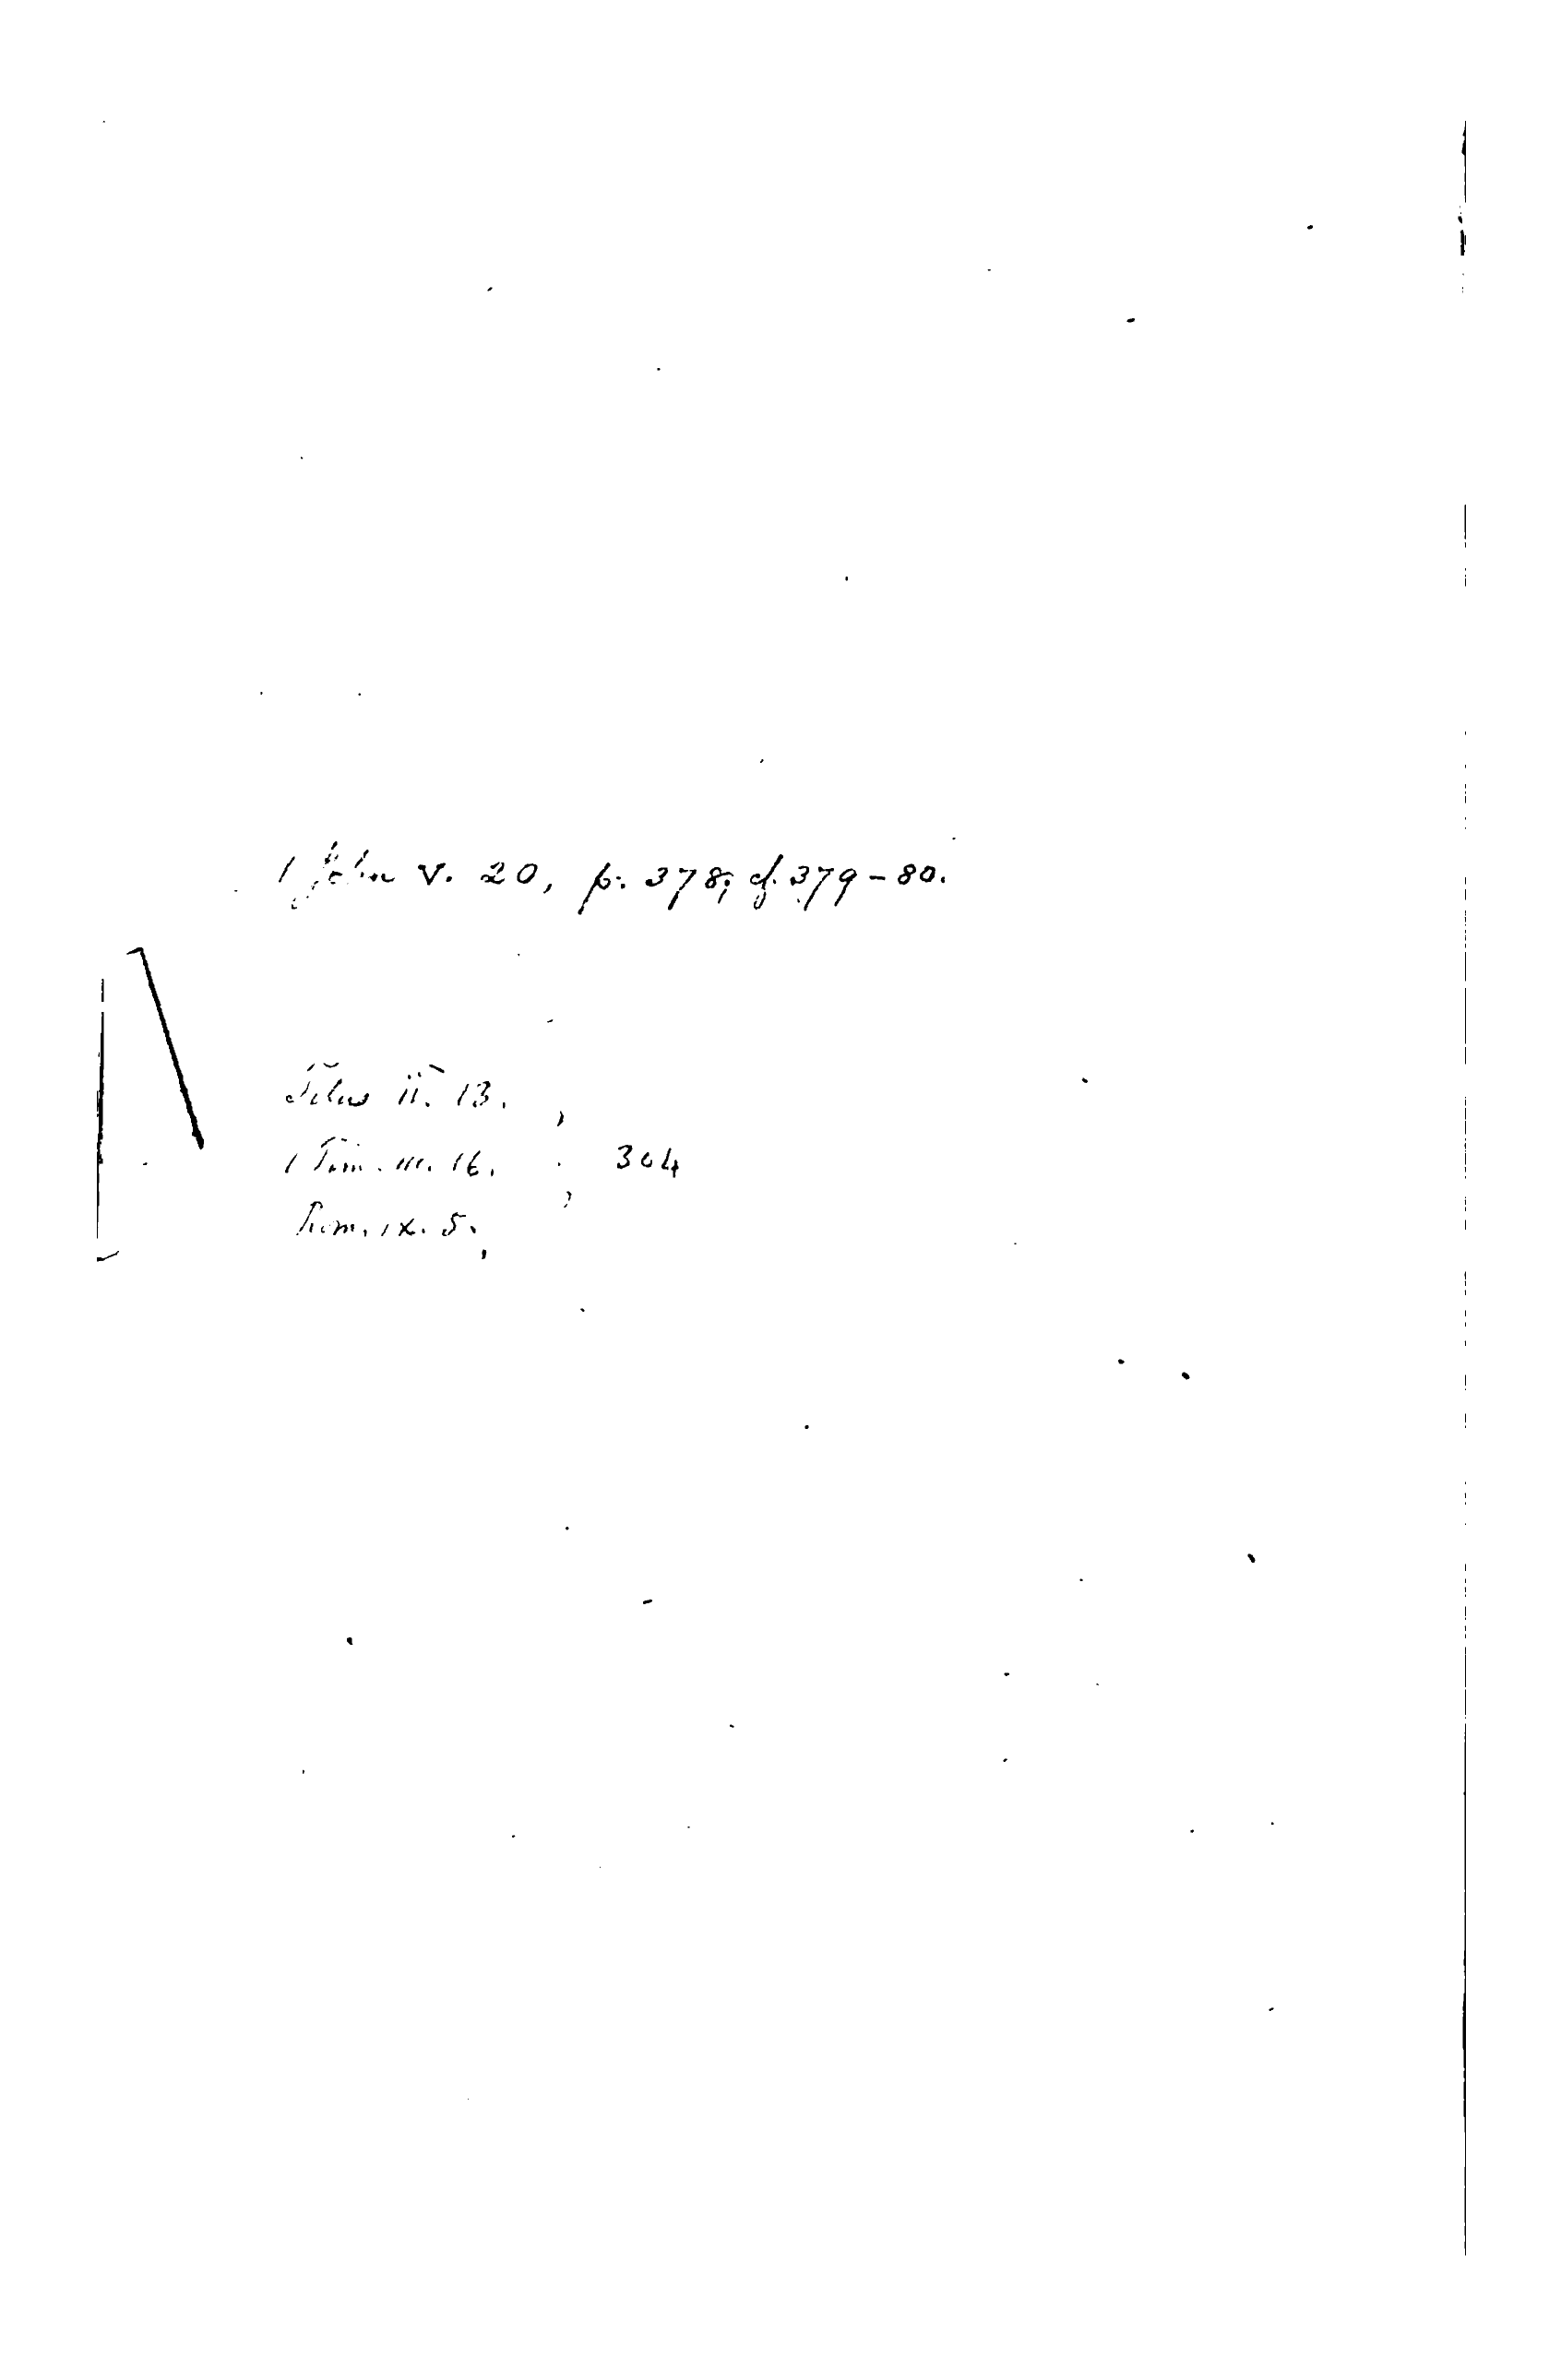 1 John v. 20, p. 378; cf. 379-80.
Titus ii. 13.
1 Tim. iii. 16. 304
Rom. ix. 5.